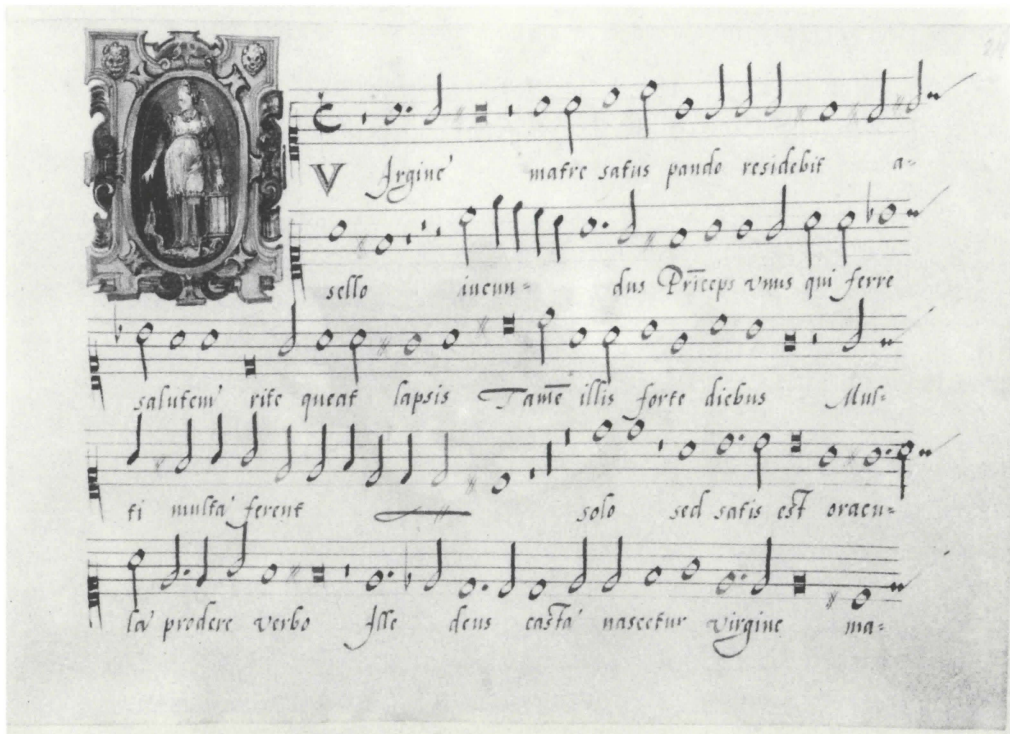 VIrgine matre satus pando residebit a-
sello iucun- dus Prīceps vnus qui ferre
salutem rite queat lapsis Tamē illis forte diebus Mul-
ti multa ferent solo sed satis est oracu-
la prodere verbo Ille deus casta nascetur virgine ma-